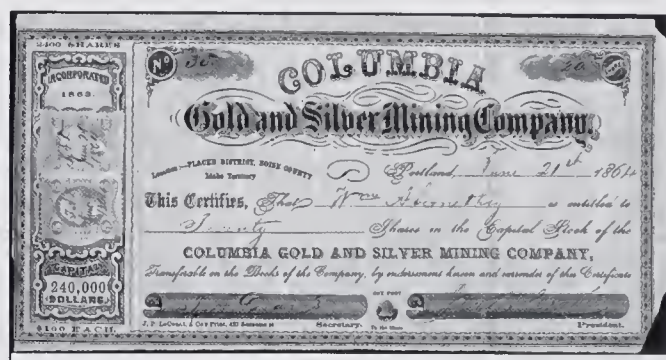 2400 SHARES
INCORPORATED
1863.
CAPITAL
240,000
DOLLARS
$100 EACH.
No 35
20
COLUMBIA
Gold and Silver Mining Company.
Location:—PLACER DISTRICT, BOISE COUNTY
Idaho Territory
Portland, June 21st 1864
This Certifies, That Wm Abernethy is entitled to
Twenty Shares in the Capital Stock of the
COLUMBIA GOLD AND SILVER MINING COMPANY,
Transferable on the Books of the Company, by endorsement hereon and surrender of this Certificate
Secretary.
President.